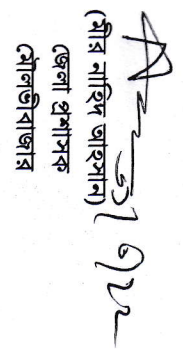 (মীর নাহিদ আহসান)
জেলা প্রশাসক
মৌলভীবাজার